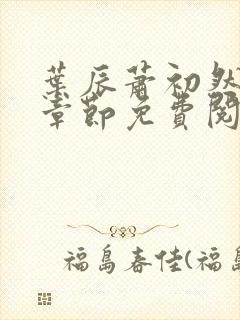 葉辰蕭初然
章節免費閱
福島春佳(福島